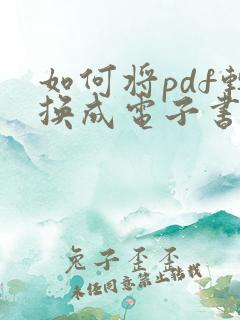 如何将pdf转
换成电子书
兔子歪歪
未经同意禁止转载